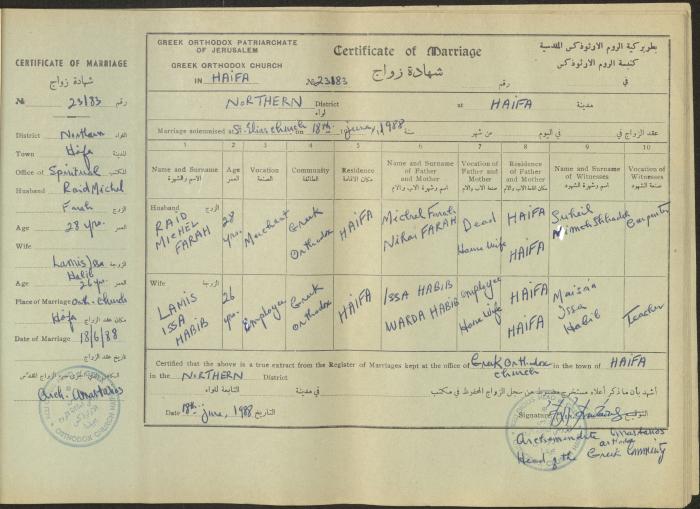 CERTIFICATE OF MARRIAGE
شهادة زواج
№ 23183 رقم
District Northern اللواء
Town Haifa المدينة
Office of Spiritual المكتب
Husband Raid Michel الزوج
Farah
Age 28 yrs. العمر
Wife
Lamis Issa الزوجة
Habib
Age 26 yrs. العمر
Place of Marriage Orth. church
Haifa مكان عقد الزواج
Date of Marriage 18/6/88
تاريخ عقد الزواج
Arch. Anastasios
GREEK ORTHODOX PATRIARCHATE
OF JERUSALEM
GREEK ORTHODOX CHURCH
IN HAIFA
Certificate of Marriage
شهادة زواج
№ 23183 رقم
بطريركية الروم الارثوذكس المقدسية
كنيسة الروم الارثوذكس
في
NORTHERN District لواء at HAIFA مدينة
Marriage solemnised at St. Elias church on 18th june, 1988 سنة من شهر في اليوم عقد الزواج في
1 2 3 4 5 6 7 8 9 10
Name and Surname الاسم والشهرة
Age العمر
Vocation الصنعة
Community الطائفة
Residence مكان الاقامة
Name and Surname of Father and Mother اسم وشهرة الاب والام
Vocation of Father and Mother صنعة الاب والام
Residence of Father and Mother مكان اقامة الاب والام
Name and Surname of Witnesses اسم وشهرة الشهود
Vocation of Witnesses صنعة الشهود
Husband الزوج
RAID MICHEL FARAH
28 yrs.
Merchant
Greek Orthodox
HAIFA
Michel Farah
Nihai FARAH
Dead
House Wife
HAIFA
HAIFA
Suheil
Carpenter
Wife الزوجة
LAMIS ISSA HABIB
26 yrs.
Employee
Greek Orthodox
HAIFA
ISSA HABIB
WARDA HABIB
Employee
House Wife
HAIFA
HAIFA
Issa Habib
Teacher
Certified that the above is a true extract from the Register of Marriages kept at the office of Greek Orthodox church in the town of HAIFA
in the NORTHERN District
أشهد بأن ما ذكر أعلاه مستخرج مضبوط من سجل الزواج المحفوظ في مكتب
في مدينة التابعة للواء
Date 18th june, 1988 التاريخ
Signature التوقيع
Archimandrite Anastasios
Head of the Greek Orthodox Community